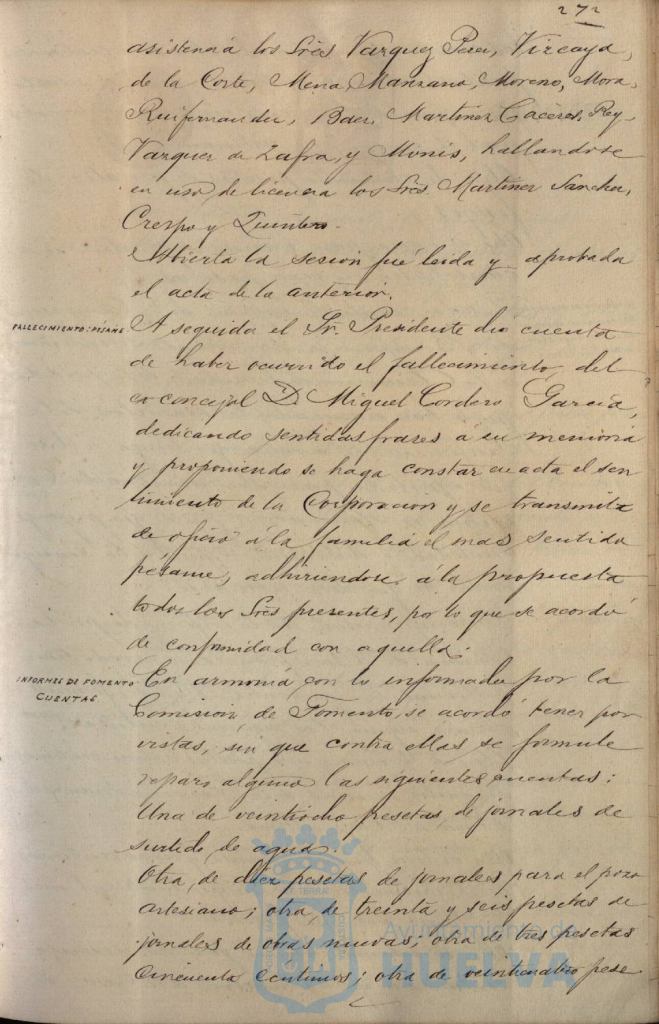 272
asistencia los Sres Vazquez Perez, Vizcaya,
de la Corte, Mena, Manzano, Moreno, Mora,
Ruifernandez, Baez, Martinez Caceres, Rey,
Vazquez de Zafra, y Monis, hallandose
en uso de licencia los Sres Martinez Sanchez,
Crespo y Quintero.
Abierta la sesion fué leida y aprobada
el acta de la anterior.
FALLECIMIENTO: PÉSAME
A seguida el Sr. Presidente dio cuenta
de haber ocurrido el fallecimiento del
ex concejal D. Miguel Cordero Garcia,
dedicando sentidas frases á su memoria
y proponiendo se haga constar en acta el sen
timiento de la Corporacion y se transmita
de oficio á la familia el mas sentido
pésame, adhiriendose á la propuesta
todos los Sres presentes, por lo que se acordó
de conformidad con aquella.
INFORMES DE FOMENTO
CUENTAS
En armonia con lo informado por la
Comision de Fomento, se acordó tener por
vistas, sin que contra ellas se formule
reparo alguno las siguientes cuentas:
Una de veintiocho pesetas de jornales de
surtido de aguas.
Otra de diez pesetas de jornales para el pozo
artesiano; otra de treinta y seis pesetas de
jornales de obras nuevas; otra de tres pesetas
cincuenta céntimos; otra de veinticuatro pese
Ayuntamiento de
HUELVA